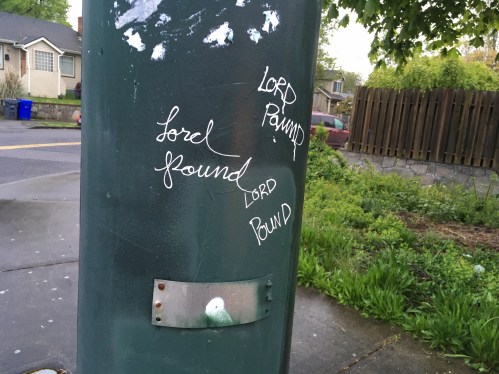 LORD
POUND
Lord
pound
LORD
POUND